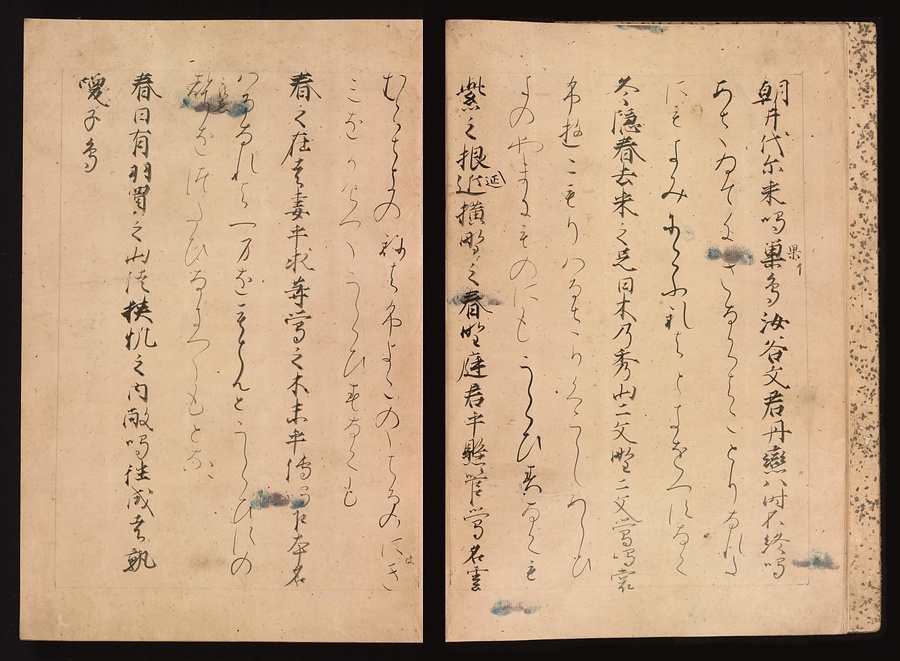 朝井代尓来鳴菓鳥汝谷文君丹戀八时不終鳴
果イ
あさゐてにきなるかほとりなれた
にもきみにこふれはときをへすなく
冬隠春去来之足日木乃秀山二文野二文鶯鳴裳
ふゆこもりはるさりくらしあしひ
きのやまにものにもうくひすなくも
紫之根延横野之春野庭君乎懸管鶯名雲
延
むらさきのねはふよこのゝはるのにき
は
みをかけつゝうくひすなくも
春之在者妻乎求等鶯之木末乎傳鳴乍本名
はるなれはつまをもとむとうくひすの
つたひなきつゝもとな
春日有羽買之山従狭帆之内敝鳴徃成者孰
喚子鳥